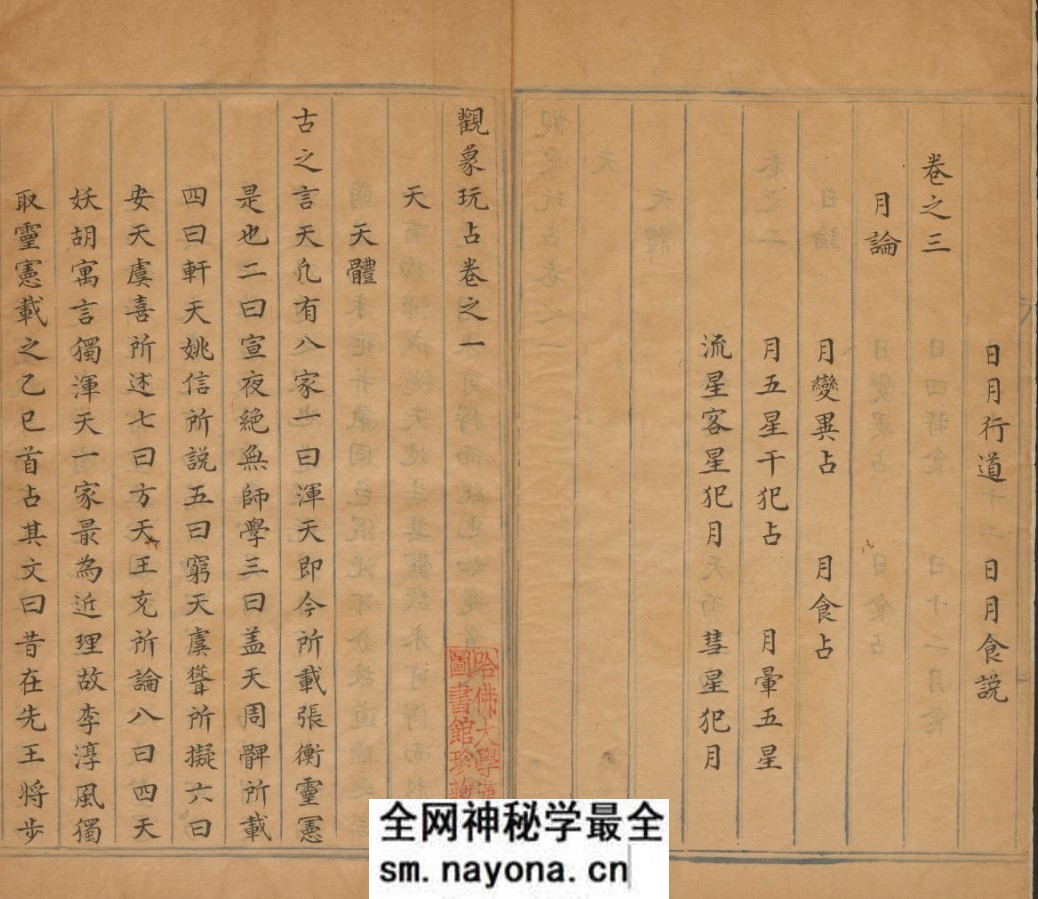 日月行道 日月食説
卷之三
月論
月變異占 月食占
月五星干犯占 月暈五星
流星客星犯月 彗星犯月
觀象玩占卷之一
天
天體
古之言天凡有八家一曰渾天即今所載張衡靈憲
是也二曰宣夜絶無師學三曰盖天周髀所載
四曰軒天姚信所説五曰窮天虞聳所擬六曰
安天虞喜所述七曰方天王充所論八曰四天
妖胡寓言獨渾天一家最為近理故李淳風獨
取靈憲載之乙巳首占其文曰昔在先王将步
哈佛大學
圖書館珍藏
全网神秘学最全
sm.nayona.cn